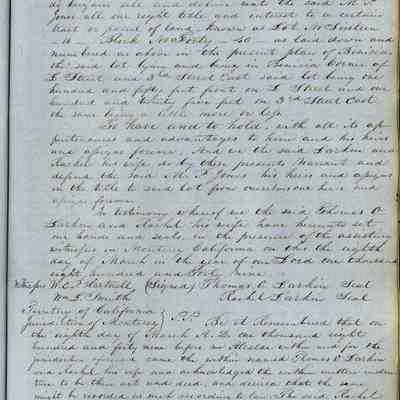 do bargain sell and declare unto the said M. P.
Jones all our right title and interest to a certain
part or parcel of land known as Lot No Sixteen
— 16 — Block No Forty — 40 — as laid down and
numbered as above in the present plan of Benicia
the said lot lying and being in Benicia Corner of
L Street and 3rd Street East said lot being one
hundred and fifty feet front on L Street and one
hundred and twenty five feet on 3rd Street East
the same being a little more or less
To have and to hold, with all its ap
purtenances and advantages to him and his heirs
and assigns forever. And we the said Larkin and
Rachel his wife do by these presents Warrant and
defend the said M. P. Jones his heirs and assigns
in the title to said lot from ourselves our heirs and
assigns forever.
In testimony whereof we the said Thomas O.
Larkin and Rachel his wife have hereunto set
our hands and seals, in the presence of the assisting
witnesses in Monterey California on this the eighth
day of March in the year of our Lord one thousand
eight hundred and Forty nine.
Witnesses W. E. P. Hartnell (Signed) Thomas O. Larkin Seal
Wm. L. Smith Rachel Larkin Seal
Territory of California
Jurisdiction of Monterey } S.S. Be it Remembered that on
the eighth day of March A. D. one thousand eight
hundred and forty nine before me Alcalde within and for the
jurisdiction aforesaid came the within named Thomas O Larkin
and Rachel his wife and acknowledged the within written inden
ture to be their act and deed, and desired that the same
might be recorded as such according to law. The said Rachel